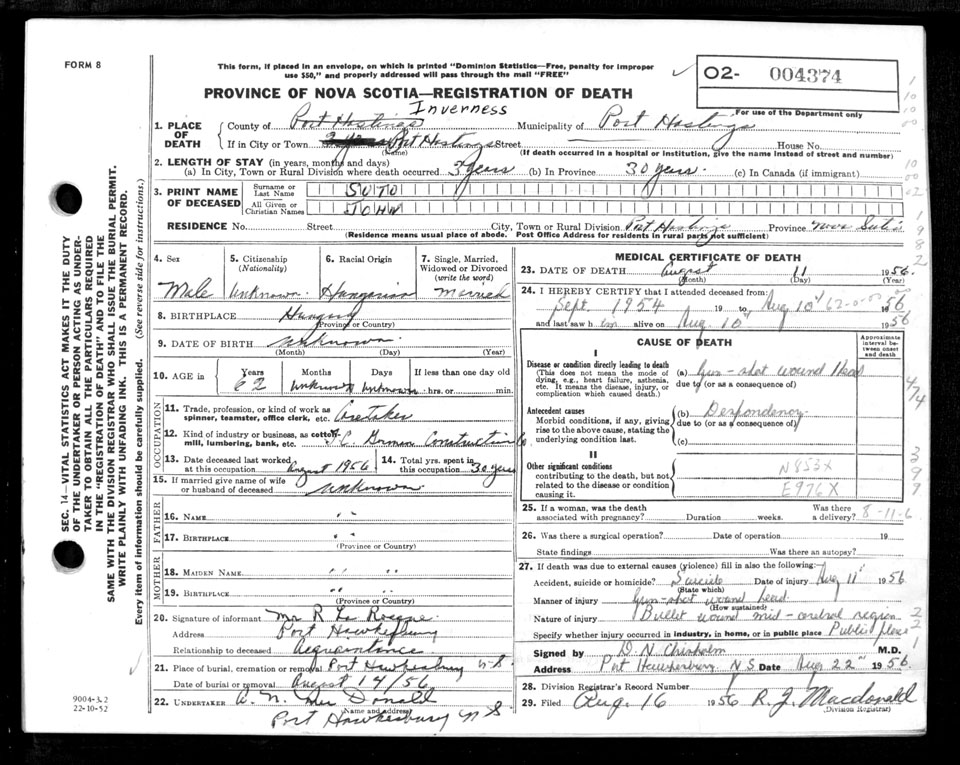 FORM 8
This form, if placed in an envelope, on which is printed "Dominion Statistics—Free, penalty for improper
use $50," and properly addressed will pass through the mail "FREE"
O2- 004374
For use of the Department only
PROVINCE OF NOVA SCOTIA—REGISTRATION OF DEATH
Inverness
1. PLACE OF DEATH
County of Port Hastings Municipality of Port Hastings
If in City or Town Port Hastings Street House No.
(Name) (If death occurred in a hospital or institution, give the name instead of street and number)
2. LENGTH OF STAY (in years, months and days)
(a) In City, Town or Rural Division where death occurred 3 years (b) In Province 30 years. (c) In Canada (if immigrant)
3. PRINT NAME OF DECEASED
Surname or Last Name SUTO
All Given or Christian Names JOHN
RESIDENCE No. Street City, Town or Rural Division Port Hastings Province Nova Scotia
(Residence means usual place of abode. Post Office Address for residents in rural parts not sufficient)
4. Sex 5. Citizenship (Nationality) 6. Racial Origin 7. Single, Married, Widowed or Divorced (write the word)
Male Unknown Hungarian Married
8. BIRTHPLACE Hungary
(Province or Country)
9. DATE OF BIRTH Unknown
(Month) (Day) (Year)
10. AGE in Years Months Days If less than one day old
62 Unknown Unknown hrs. or min.
OCCUPATION
11. Trade, profession, or kind of work as spinner, teamster, office clerk, etc. Caretaker
12. Kind of industry or business, as cotton mill, lumbering, bank, etc. Construction Co
13. Date deceased last worked at this occupation August 1956 14. Total yrs. spent in this occupation 30 years
15. If married give name of wife or husband of deceased Unknown
FATHER
16. NAME " "
17. BIRTHPLACE " "
(Province or Country)
MOTHER
18. MAIDEN NAME " " "
19. BIRTHPLACE " " "
(Province or Country)
20. Signature of informant Mr R
Address Port Hawkesbury
Relationship to deceased Acquaintance
21. Place of burial, cremation or removal Port Hawkesbury N.S.
Date of burial or removal August 14/56
22. UNDERTAKER A. N. Mac Donald
(Name and address)
Port Hawkesbury N S.
9004-3.2
22-10-52
SEC. 14—VITAL STATISTICS ACT MAKES IT THE DUTY
OF THE UNDERTAKER OR PERSON ACTING AS UNDER-
TAKER TO OBTAIN ALL THE PARTICULARS REQUIRED
IN THE "REGISTRATION OF DEATH" AND TO FILE THE
SAME WITH THE DIVISION REGISTRAR WHO SHALL ISSUE THE BURIAL PERMIT.
WRITE PLAINLY WITH UNFADING INK. THIS IS A PERMANENT RECORD.
Every item of information should be carefully supplied. (See reverse side for instructions.)
MEDICAL CERTIFICATE OF DEATH
23. DATE OF DEATH August 11 1956.
(Month) (Day) (Year)
24. I HEREBY CERTIFY that I attended deceased from:
Sept. 1954 19 to Aug 10 1956
and last saw h im alive on Aug. 10 1956
CAUSE OF DEATH
Approximate interval between onset and death
I
Disease or condition directly leading to death
(This does not mean the mode of dying, e.g., heart failure, asthenia, etc. It means the disease, injury, or complication which caused death.)
(a) Gun-shot wound Head
due to (or as a consequence of)
Antecedent causes
Morbid conditions, if any, giving rise to the above cause, stating the underlying condition last.
(b) Despondency
due to (or as a consequence of)
(c)
II
Other significant conditions contributing to the death, but not related to the disease or condition causing it.
N853X
E976X
25. If a woman, was the death associated with pregnancy? Duration weeks. Was there a delivery?
8-11-6
26. Was there a surgical operation? Date of operation 19
State findings Was there an autopsy?
27. If death was due to external causes (violence) fill in also the following:
Accident, suicide or homicide? Suicide Date of injury Aug 11 1956
(State which)
Manner of injury Gun-shot wound head.
(How sustained)
Nature of injury Bullet wound mid-central region
Specify whether injury occurred in industry, in home, or in public place Public place
Signed by D. N. Chisholm M.D.
Address Port Hawkesbury N.S. Date Aug 22nd 1956
28. Division Registrar's Record Number
29. Filed Aug. 16 1956 R. J. Macdonald
(Division Registrar)